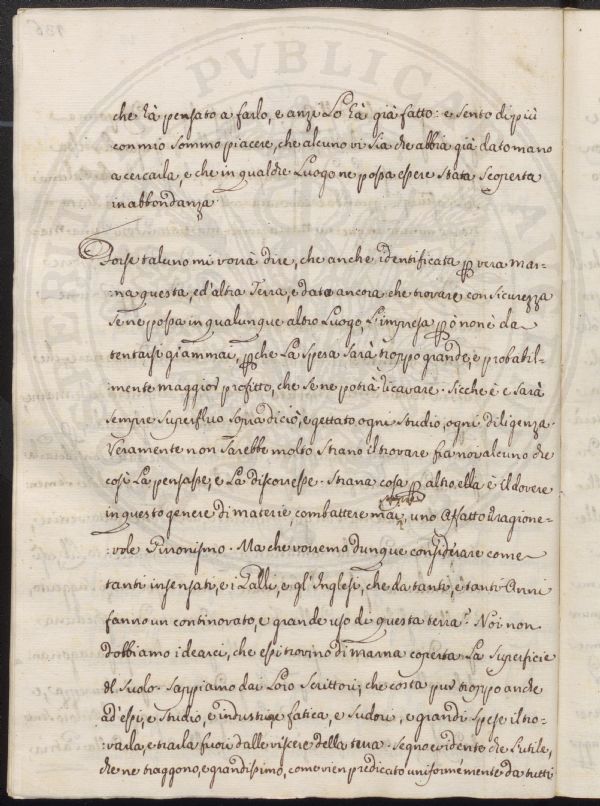 che hà pensato a farlo, e anzi Lo hà già fatto: e sento di più
con mio sommo piacere, che alcuno vi sia che abbia già dato mano
a cercarla, e che in qualche Luogo ne possa essere stata scoperta
in abbondanza.
Forse taluno mi vorrà dire, che anche identificata p vera mar=
=na questa, ed'altra Terra, e data ancora che trovare con sicurezza
se ne possa in qualunque altro Luogo, L'impresa pò non è da
tentarsi giammai, pche La spesa sarà troppo grande, e probabil=
=mente maggior profitto, che se ne potrà ricavare. Sicche è e sarà
sempre superfluo sopra di ciò, e gettato ogni studio, ogni diligenza.
Veramente non sarebbe molto strano il trovare fra noi alcuno che
così La pensasse, e La discorresse. Strana cosa p altro ella è il dovere
in questo genere di materie, combattere mai, uno affatto irragione=
=vole Pirronismo. Ma che vorremo dunque considerare come
tanti insensati, e i Galli, e gl'Inglesi, che da tanti, e tanti Anni
fanno un continovato, e grande uso di questa terra? Noi non
dobbiamo idearci, che essi trovino di marna coperta La superficie
del Suolo. Sappiamo dai Loro Scrittori, che costa pur troppo anche
ad'essi, e studio, e industria, e fatica, e sudori, e grandi spese il tro=
=varla, e trarla fuori dalle viscere della terra. Segno evidente che L'utile,
che ne traggono, e grandissimo, come vien predicato uniformemente da tutti